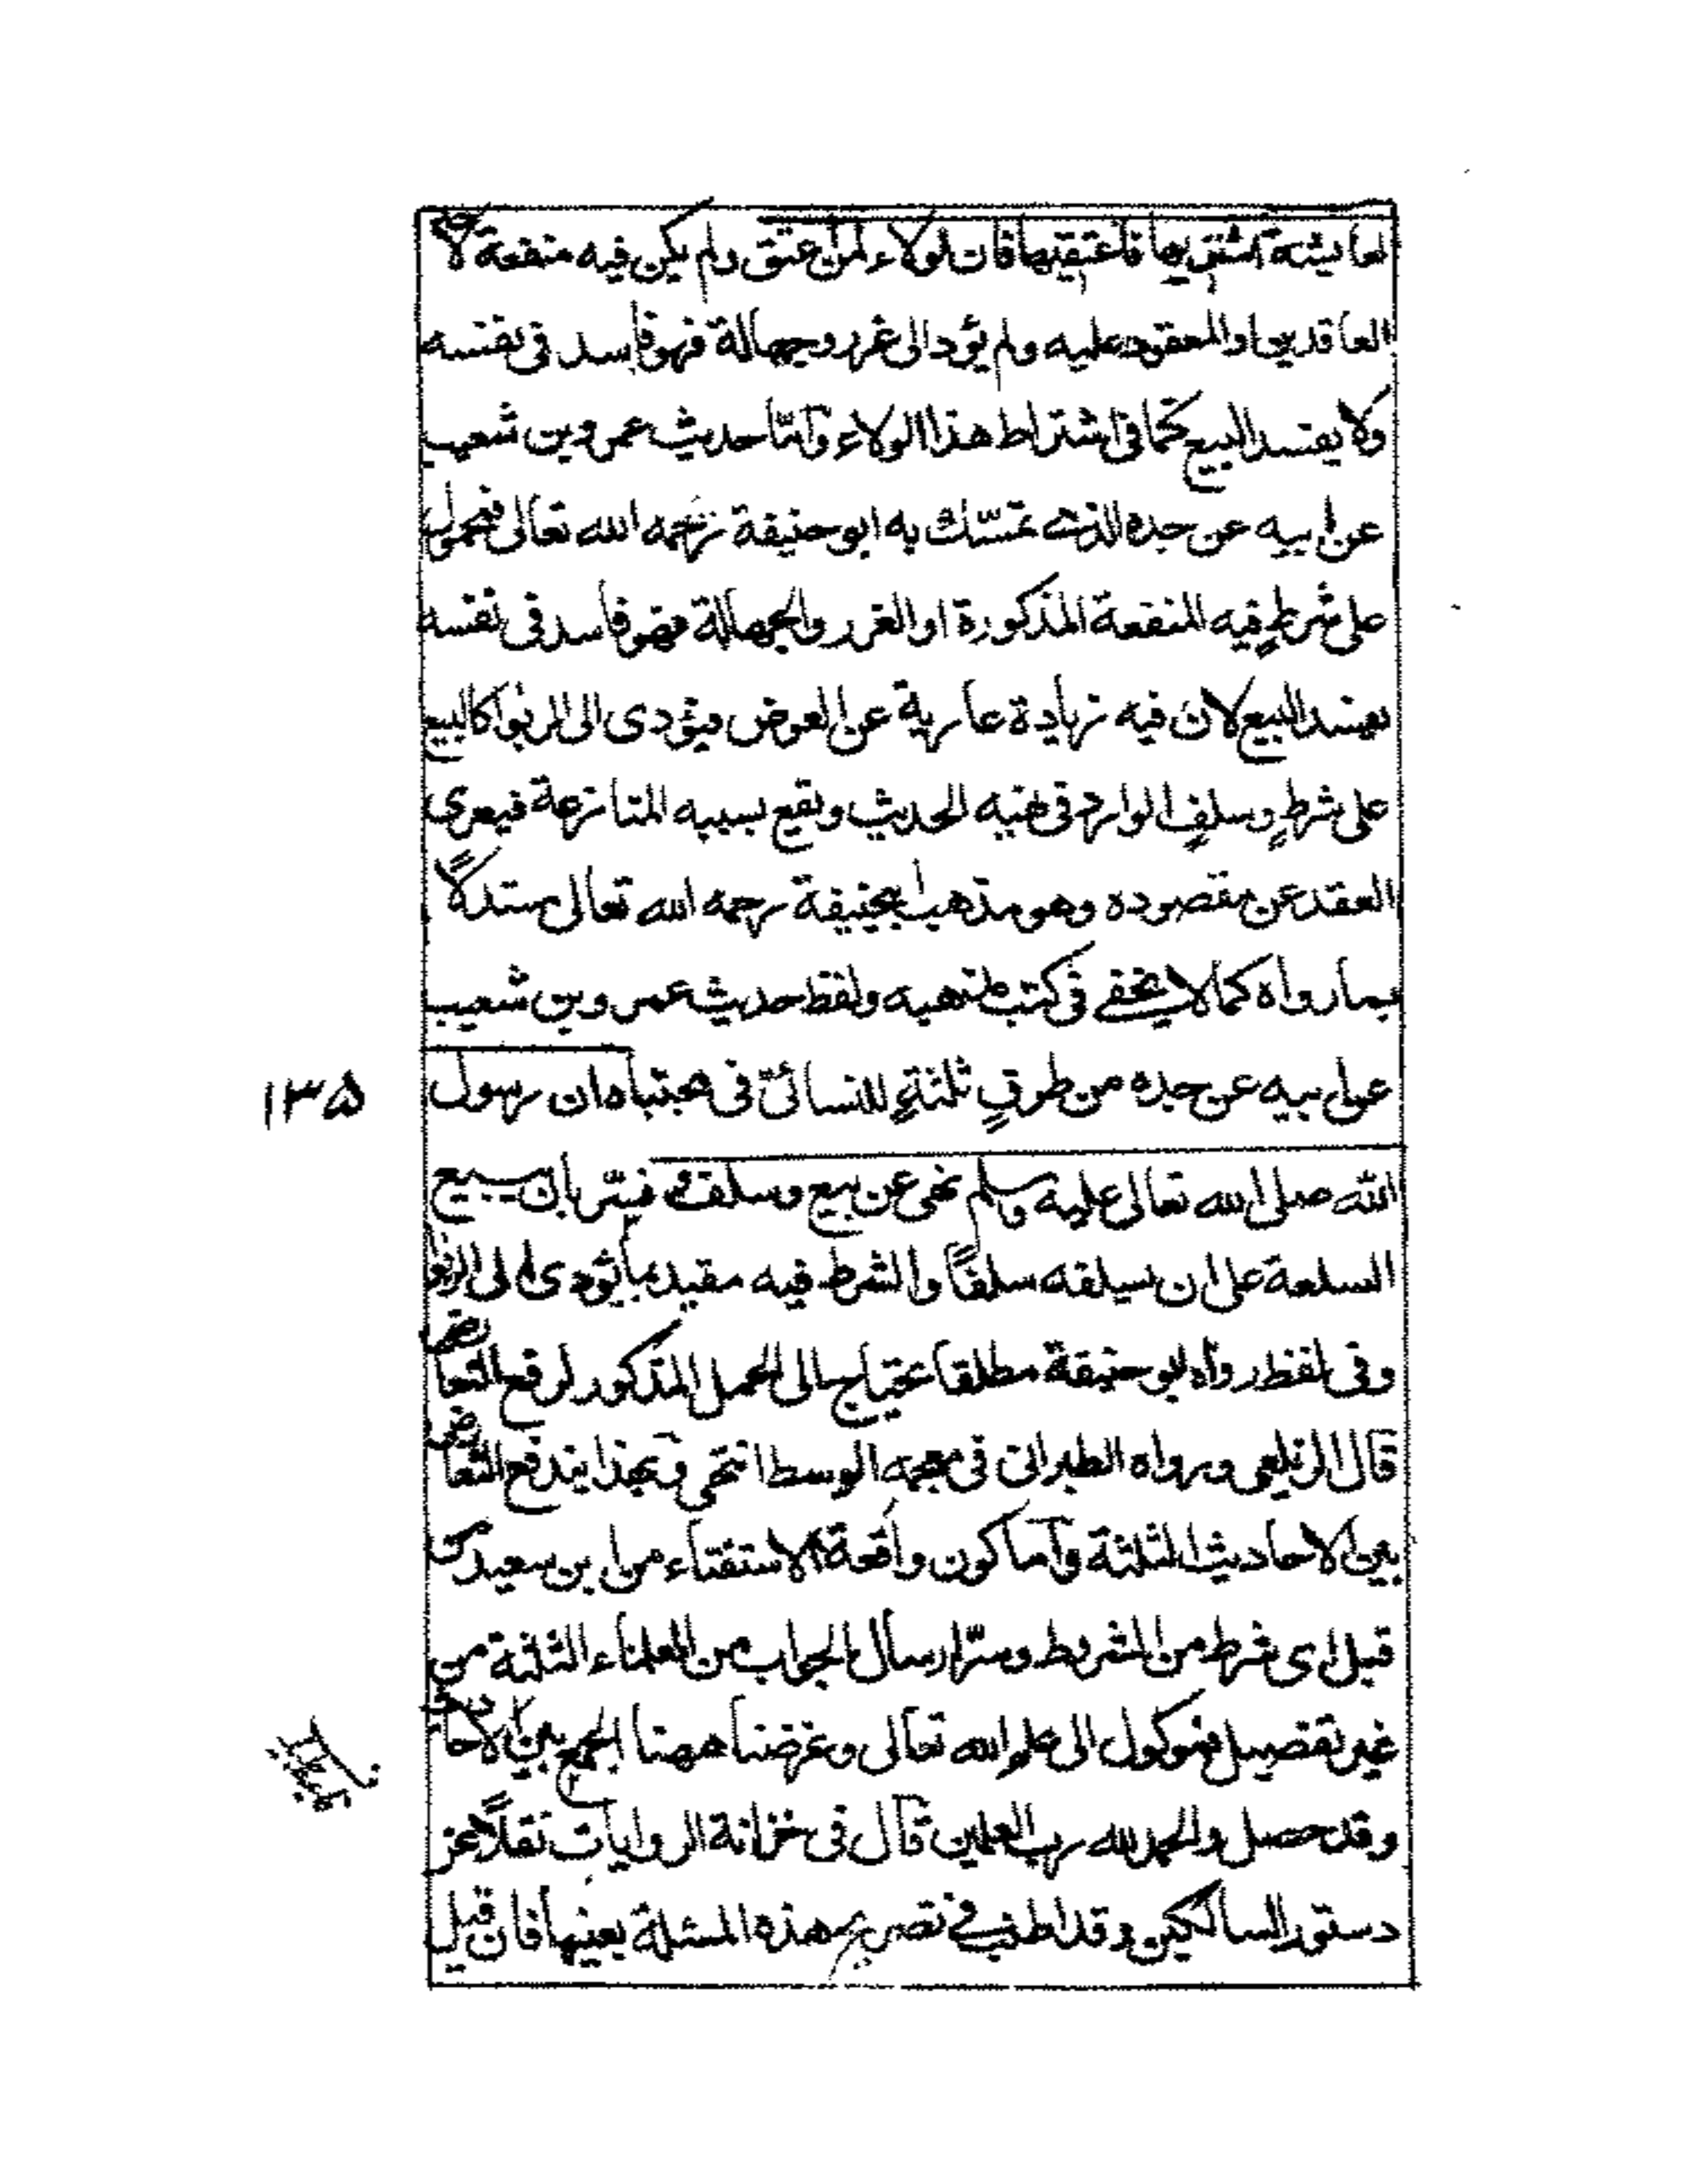 لعايشة اشتريها فاعتقيها فان لولاء لمن اعتق ولم يكن فيه منفعة لاحد
العاقدين او المعقود عليه ولم يؤد الى غرر وجهالة فهو فاسد فى نفسه
ولا يفسد البيع كما فى اشتراط هذا الولاء وآمّا حديث عمرو بن شعيب
عن ابيه عن جده الذى تمسّك به ابو حنيفة رحمه الله تعالى فمحمول
على شرطٍ فيه المنفعة المذكورة او الغرر والجهالة فهو فاسد فى نفسه
يفسد البيع لان فيه زيادة عارية عن العوض فيؤدى الى الربوا كالبيع
على شرطٍ وسلفٍ الوارد فى نهيه الحديث ويقع بسببه المنازعة فيعرى
العقد عن مقصوده وهو مذهب ابيحنيفة رحمه الله تعالى مستدلاً
بما رواه كما لا يخفے فى كتب مذهبه ولفظ حديث عمرو بن شعيب
عن ابيه عن جده من طرقٍ ثلثةٍ للنسائى فى مجتباه ان رسول
١٣٥
الله صلى الله تعالى عليه وسلم نهى عن بيع وسلف و فسّر بان يبيع
السلعة على ان يسلفه سلفًا والشرط فيه مقيد بما يؤدى الى الربوا
وفى لفظ رواه ابو حنيفة مطلقا يحتاج الى الحمل المذكور لرفع التعارض
قال الزيلعى ورواه الطبرانى فى معجمه الوسط انتهى وبهذا يندفع التعارض
بين الاحاديث الثلثة وآما كون واقعة الاستفتاء من ابن سعيد من
قبل اى شرط من الشروط وسرّ ارسال الجواب من العلماء الثلثة من
غير تفصيل فموكول الى علم الله تعالى وغرضنا ههنا الجمع بين الاحاديث
وقد حصل والحمد لله رب العلمين قال فى خزانة الروايات نقلًا عن
دستور السالكين وقد اطنب فے تصريح هذه المسئلة بعينها فان قيل